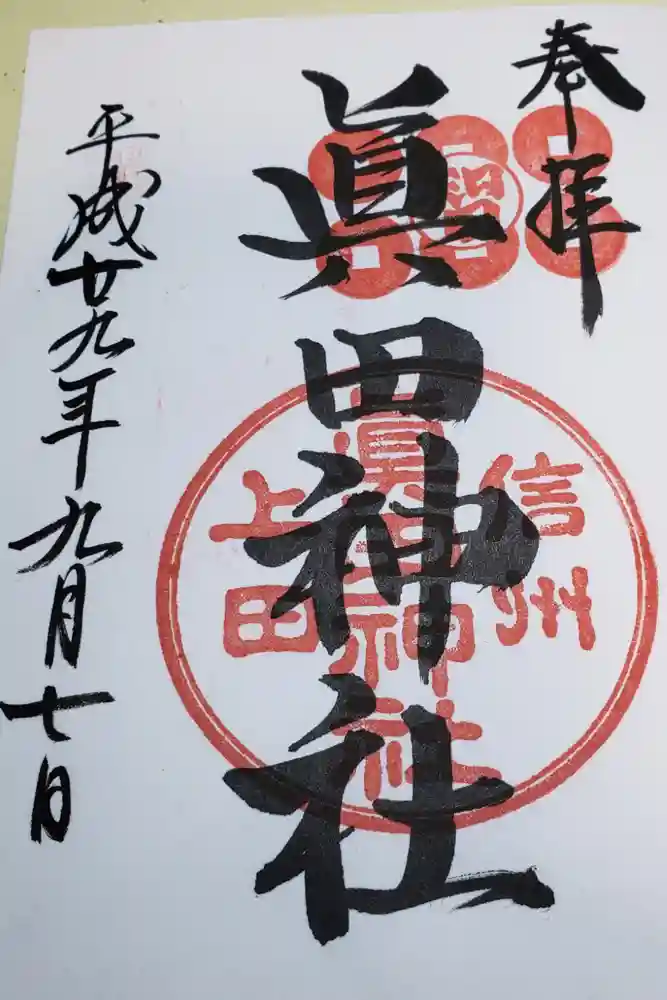 奉拝
眞田神社
信州
眞田神社
上田
平成廿九年九月七日